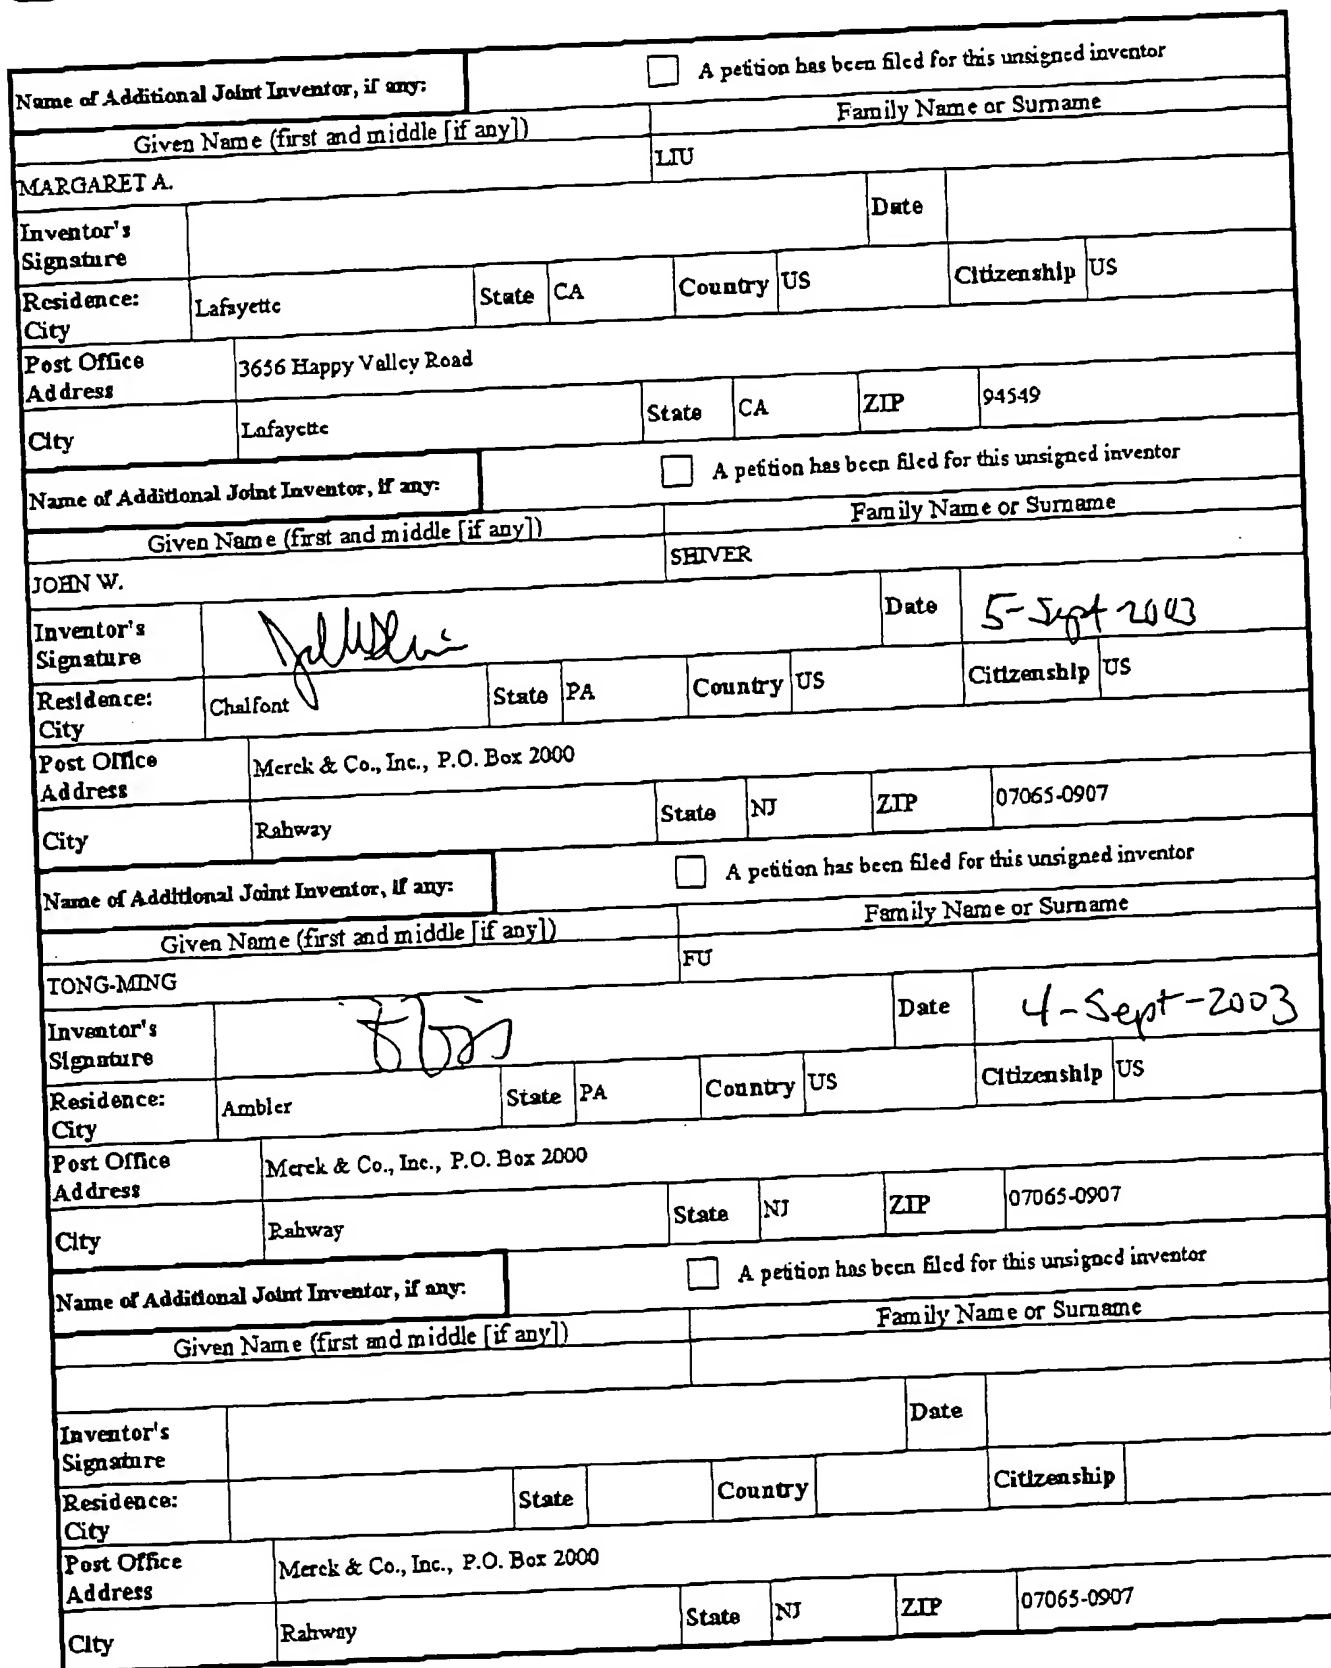 Name of Additional Joint Inventor, if any: A petition has been filed for this unsigned inventor
Given Name (first and middle [if any]) Family Name or Surname
MARGARET A. LIU
Inventor's Signature Date
Residence: City Lafayette State CA Country US Citizenship US
Post Office Address 3656 Happy Valley Road
City Lafayette State CA ZIP 94549
Name of Additional Joint Inventor, if any: A petition has been filed for this unsigned inventor
Given Name (first and middle [if any]) Family Name or Surname
JOHN W. SHIVER
Inventor's Signature Date 5-Sept-2003
Residence: City Chalfont State PA Country US Citizenship US
Post Office Address Merck & Co., Inc., P.O. Box 2000
City Rahway State NJ ZIP 07065-0907
Name of Additional Joint Inventor, if any: A petition has been filed for this unsigned inventor
Given Name (first and middle [if any]) Family Name or Surname
TONG-MING FU
Inventor's Signature Date 4-Sept-2003
Residence: City Ambler State PA Country US Citizenship US
Post Office Address Merck & Co., Inc., P.O. Box 2000
City Rahway State NJ ZIP 07065-0907
Name of Additional Joint Inventor, if any: A petition has been filed for this unsigned inventor
Given Name (first and middle [if any]) Family Name or Surname
Inventor's Signature Date
Residence: City State Country Citizenship
Post Office Address Merck & Co., Inc., P.O. Box 2000
City Rahway State NJ ZIP 07065-0907